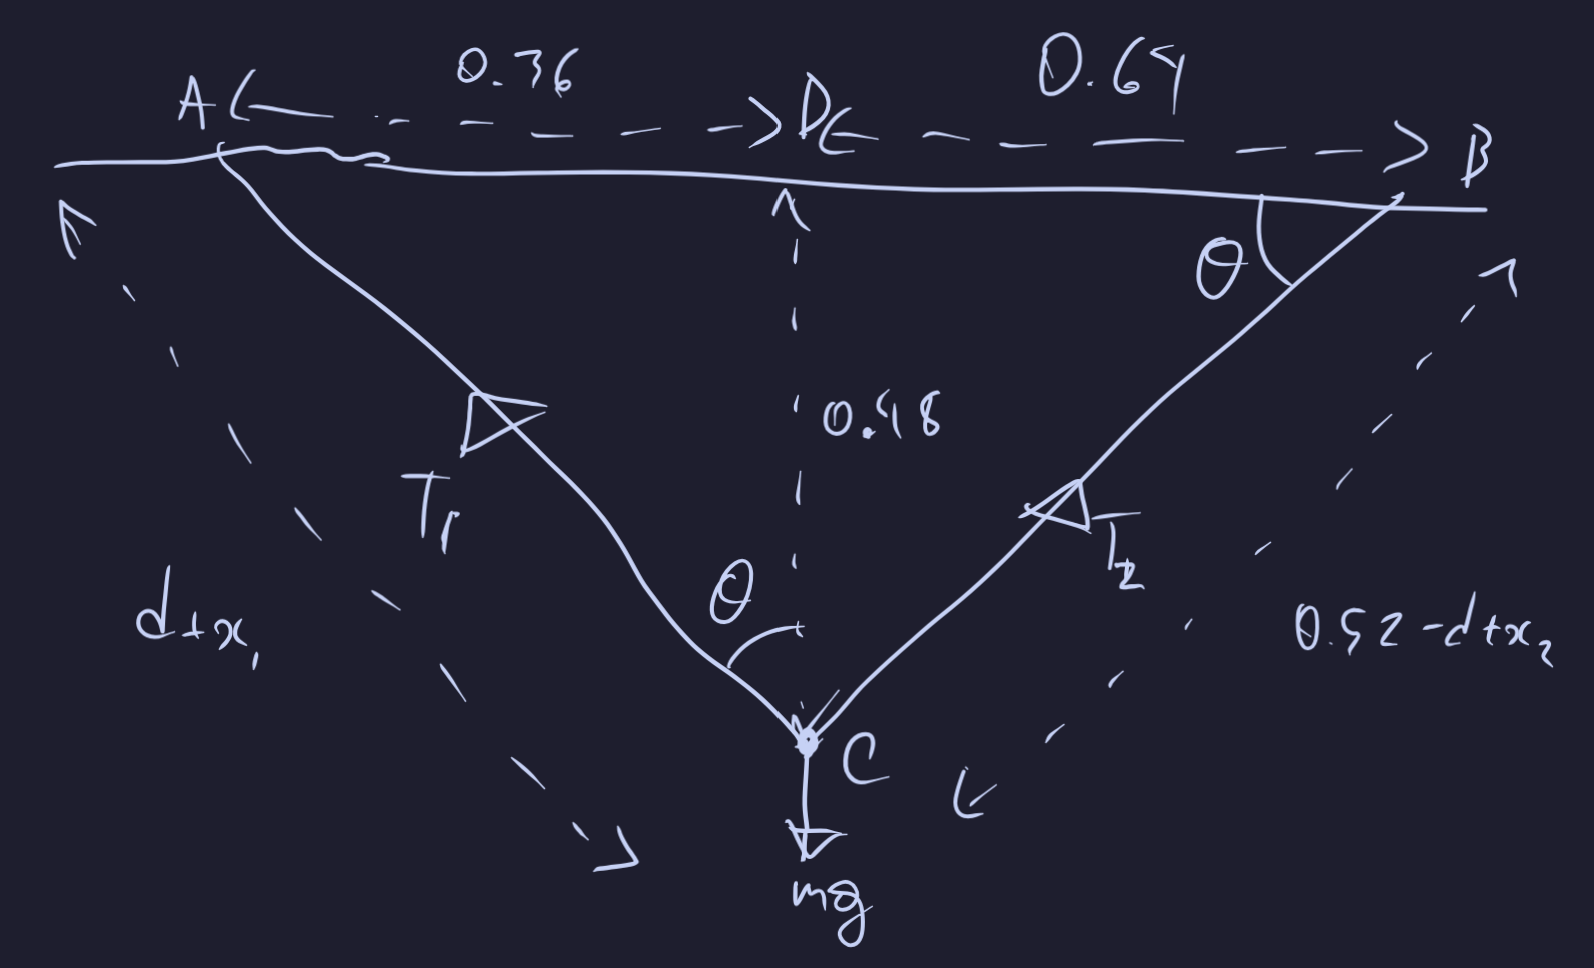 0.36
0.64
A
D
B
θ
0.48
T₁
T₂
θ
d+x₁
0.52-d+x₂
C
mg